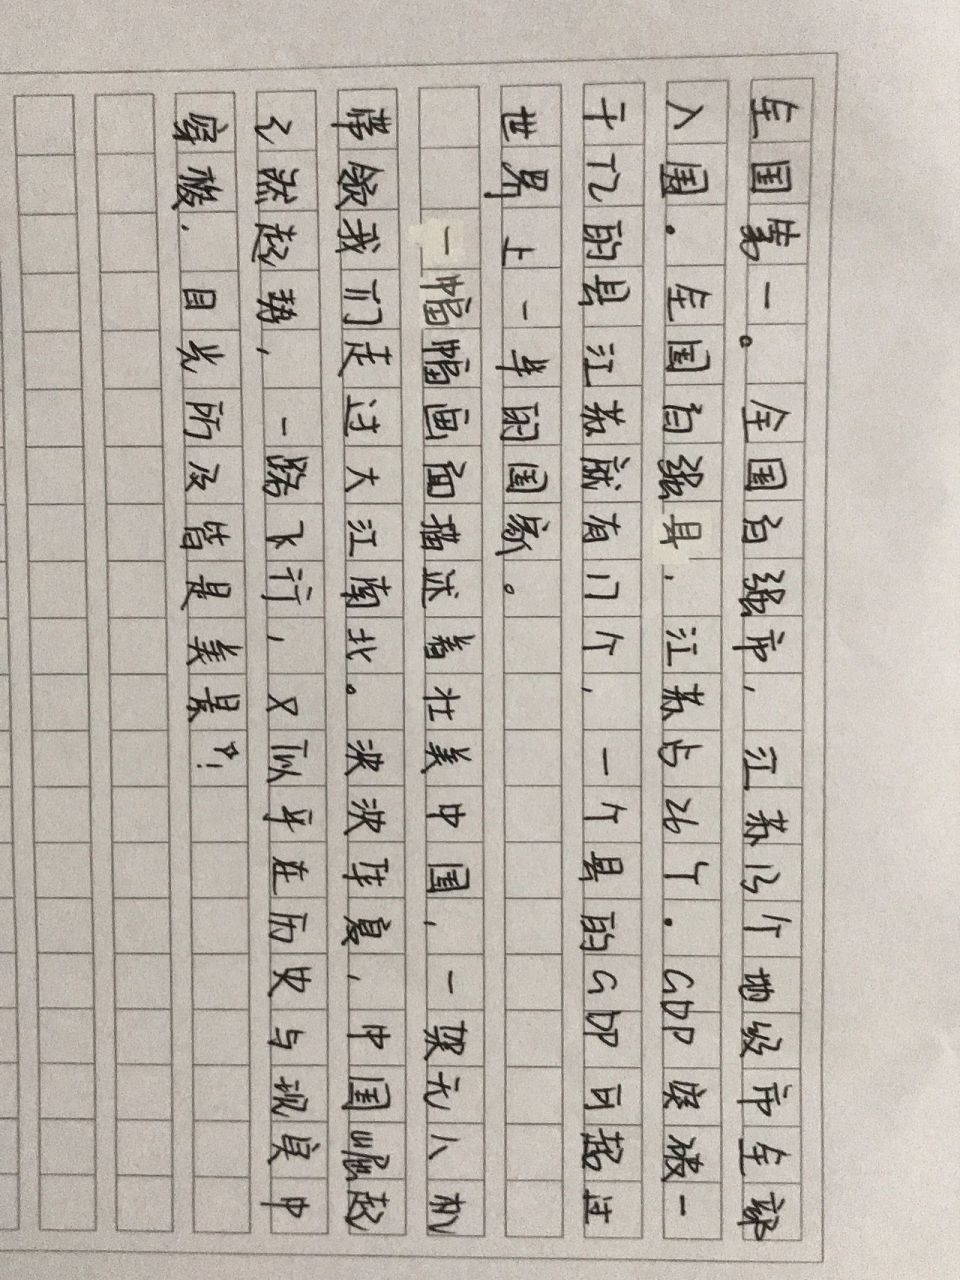 全国第一。全国百强市,江苏13个地级市全部
入围.全国百强县.江苏占26个.GDP突破一
千亿的县江苏就有17个,一个县的GDP可超过
世界上一半的国家。
一幅幅画面描述着壮美中国,一架无人机
带领我们走过大江南北。泱泱华夏,中国崛起
之然起势,一路飞行,又似乎在历史与现实中
穿梭.目光所及皆是美景!